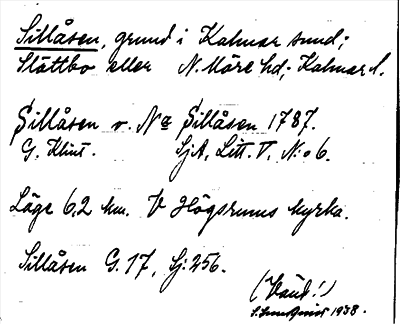 Sillåsen, grund i Kalmar sund;
Slättbo eller N. Möre hd; Kalmar l.
Sillåsen o. Na Sillåsen 1787.
G. Klint. SjA, Litt. V, N:o 6.
Läge 6,2 km. V Högsrums kyrka.
Sillåsen G. 17, Sj: 256.
(Vänd!)
1938.